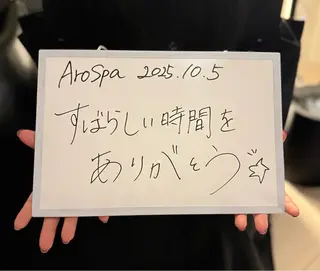 AroSpa 2025.10.5
すばらしい時間を
ありがとう☆